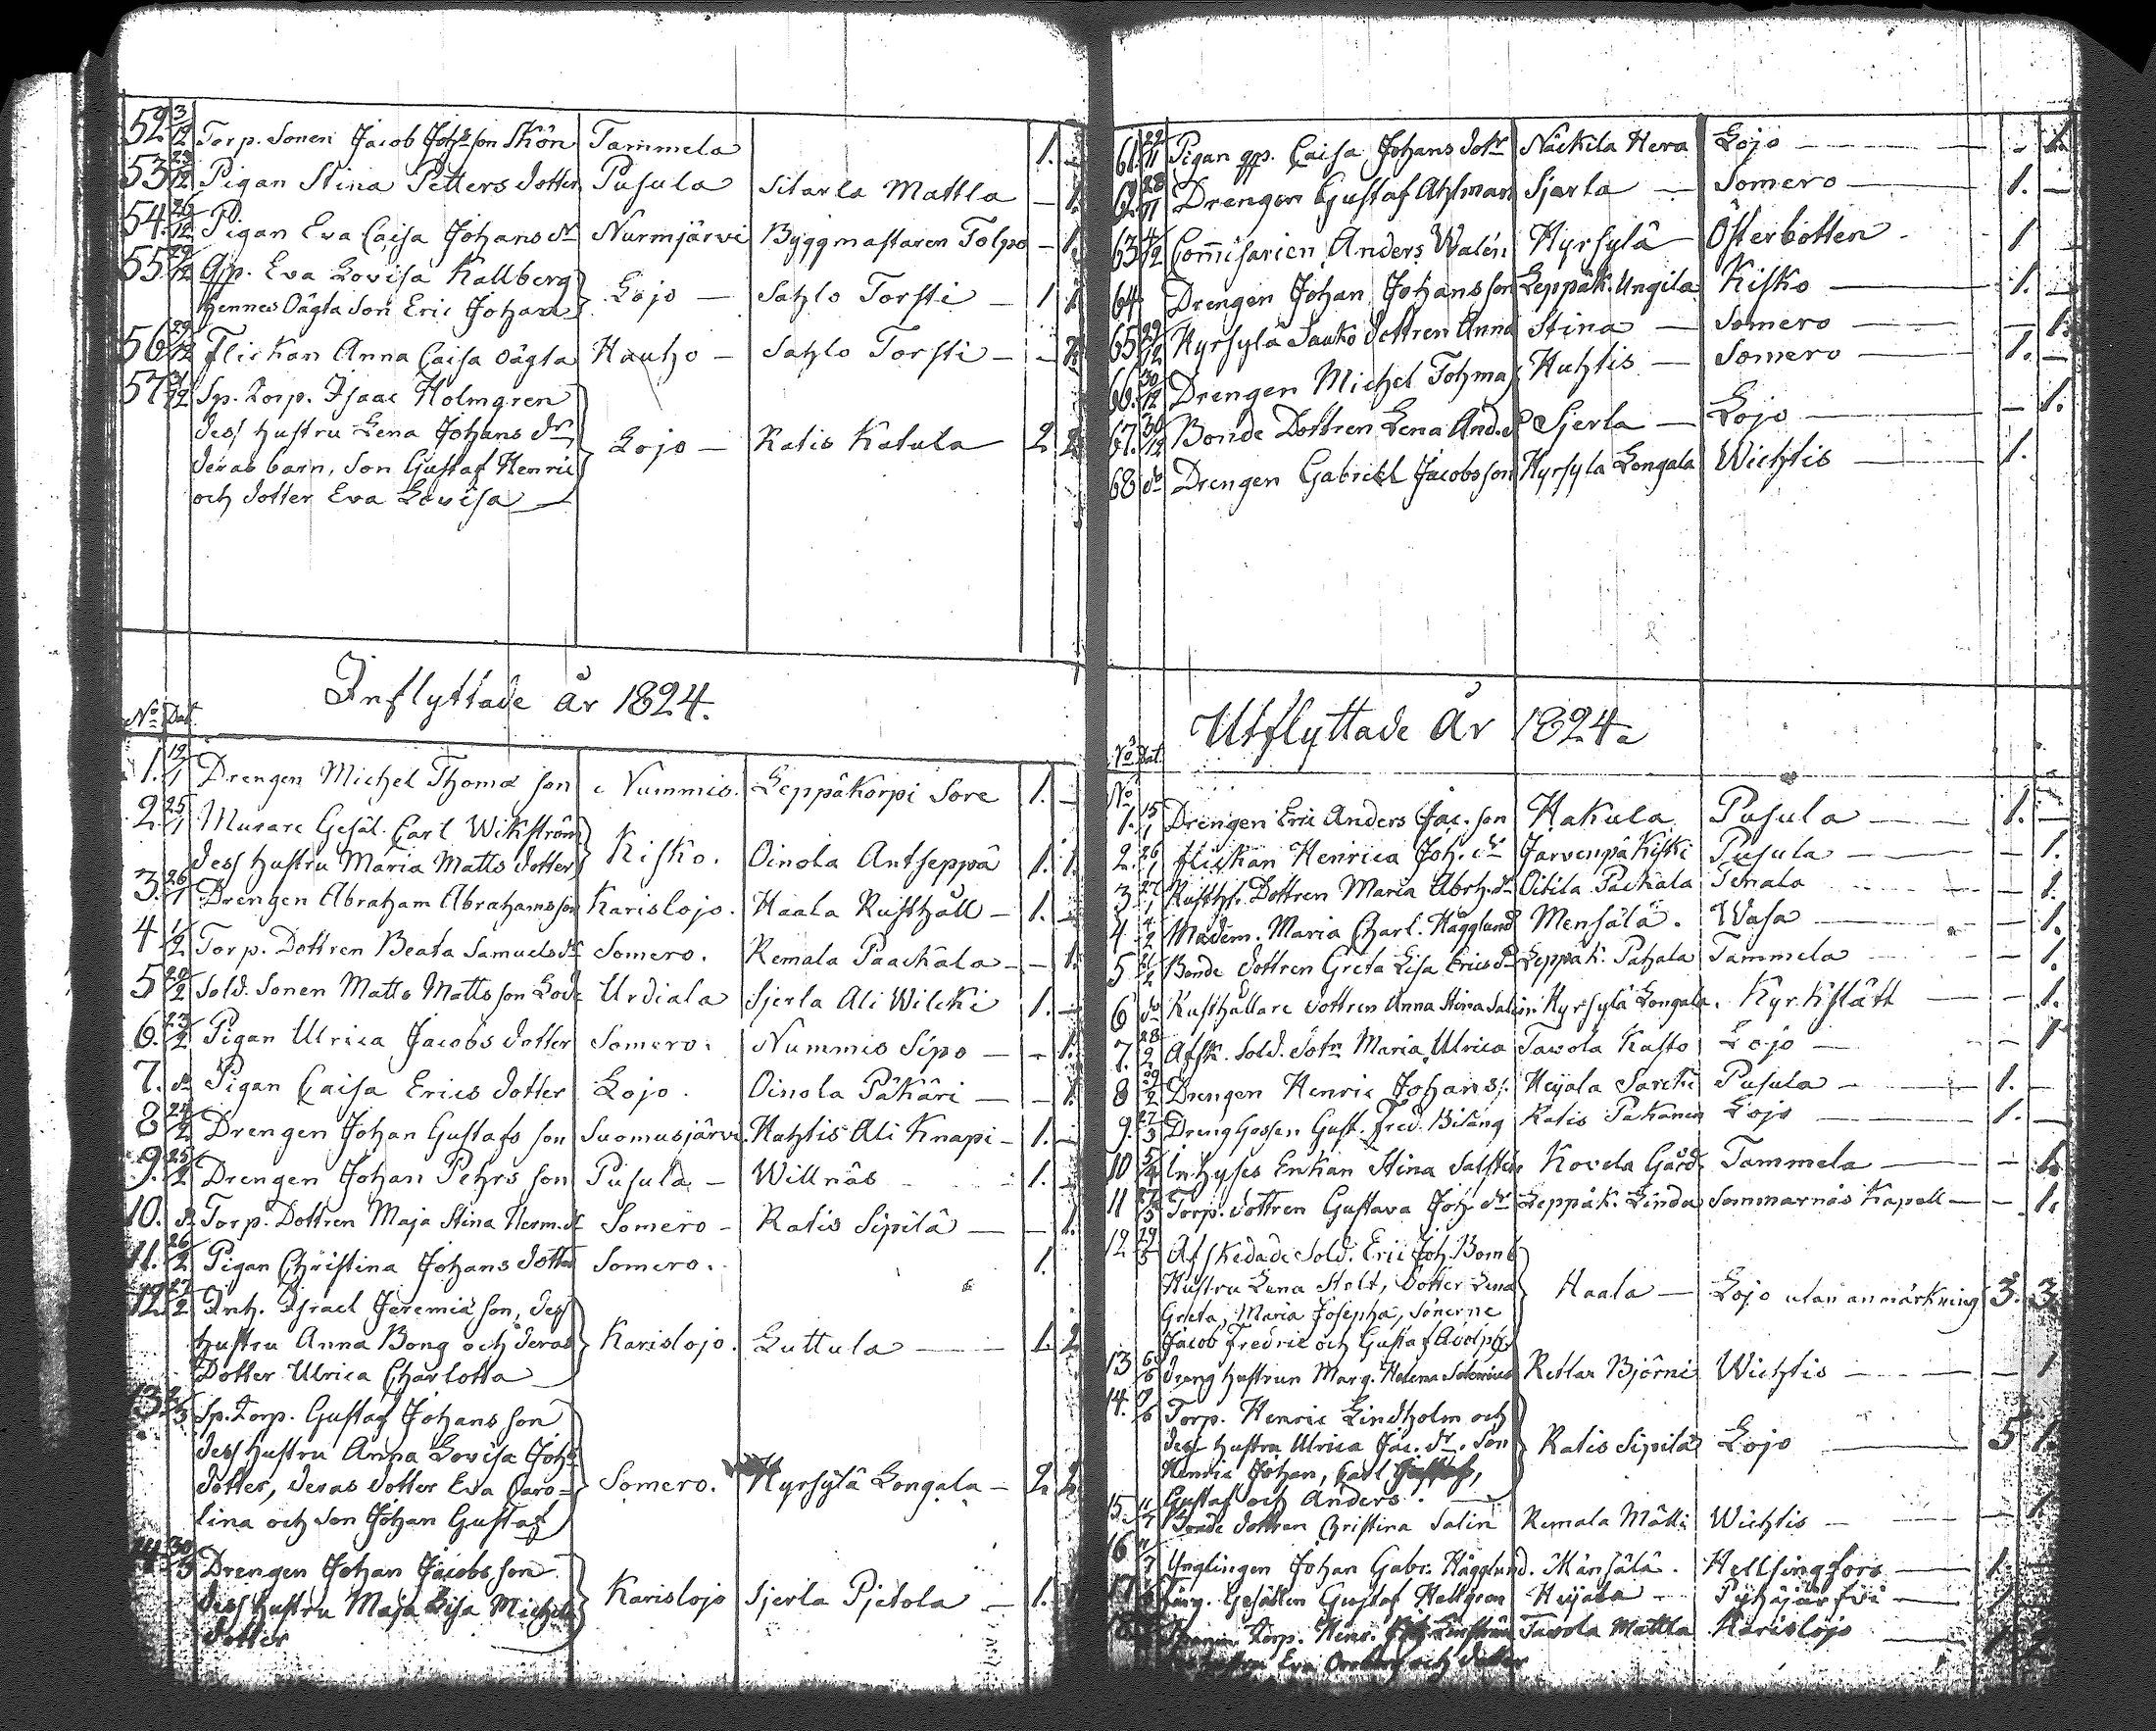 52. 3/12 Torp. Sonen Jacob Johsson Skön Tammela 1. —
53 23/12 Pigan Stina Petters dotter Pusula Sitarla Mattla — 1.
54. 26/12 Pigan Eva Caisa Johans dr Nurmjärvi Byggmastaren Tolpo — 1.
55. 29/12 Gfp. Eva Lovisa Kallberg
hennes Oägta Son Eric Johan } Lojo — Sahlo Torsti — 1 1
56 29/12 Flickan Anna Caisa oägta Hauho — Sahlo Torsti — — 1.
57 31/12 Sp. Torp. Isaac Holmgren
dess hustru Lena Johans dr
deras barn, Son Gustaf Henric } Lojo — Ratis Katula 2 2
och dotter Eva Lovisa —
Inflyttade år 1824.
No Dat.
1. 19/1 Drengen Michel Thomæ son Nummis. Leppäkorpi Sore 1. —
2. 25/1 Murare Gesäl. Carl Wikström
dess hustru Maria Matts dotter } Kisko. Oinola Antseppä 1. 1.
3. 26/1 Drengen Abraham Abrahamsson Karislojo. Haala Rusthåll — 1. —
4 1/2 Torp. Dottren Beata Samuels dr Somero. Remala Paackala — — 1.
5 20/2 Sold. Sonen Matts Mattsson Lode Urdiala Sjerla Ali Wilcki 1. —
6. 23/2 Pigan Ulrica Jacobs dotter Somero. Nummis Sipo — — 1.
7. do Pigan Caisa Erics dotter Lojo. Oinola Päkäri — — 1.
8 24/2 Drengen Johan Gustafs son Suomusjärvi. Huhtis Ali Knapi — 1. —
9. 25/2 Drengen Johan Pehrs son Pusula — Willnäs 1. —
10. do Torp. Dottren Maja Stina Herm. dr Somero — Ratis Sipilä — — 1.
11. 26/2 Pigan Christina Johans dotter Somero. 1.
12. 27/2 Inh. Israel Jeremiæ son, dess
hustru Anna Bong och deras } Karislojo. Luttula — 1. 2
Dotter Ulrica Charlotta —
13. 2/3 Sp. Torp. Gustaf Johans son
dess hustru Anna Lovisa Johs
dotter, deras dotter Eva Caro- } Somero. Hyrsylä Longala — 2 2
lina och son Johan Gustaf
14. 30/3 Drengen Johan Jacobs son
dess hustru Maja Lisa Michels } Karislojo Sjerla Pjetola — 1. 1
dotter
61. 22/11 Pigan gfp. Caisa Johans dotr Näckila Hera Lojo — — 1.
62. 28/11 Drengen Gustaf Ahlman Sjerla — Somero — 1. —
63 4/12 Commisarien Anders Walén Hyrsylä — Österbotten 1
64 Drengen Johan Johansson Leppäk. Ungila Kisko — 1. —
65 29/12 Hyrsylä Sauko dottren Anna Stina — Somero — — 1.
66. 30/12 Drengen Michel Tohma Huhtis — Somero — 1. —
67. 30/12 Bonde Dottren Lena And. d Sjerla — Lojo — — 1.
68 do Drengen Gabriel Jacobsson Hyrsyla Longala Wichtis — 1.
Utflyttade År 1824.
No Dat.
No
1. 15/1 Drengen Eric Anders Jac. son Hakula Pusula — 1. —
2. 26/1 flickan Henrica Joh. dr Jarvenpä Kiski Pusula — — 1.
3 27/1 Rusthl. Dottren Maria Abrh. dr Oitila Packala Tenala — 1.
4 4/2 Madem. Maria Charl. Hägglund Mensälä. Wasa — — 1.
5 21/2 Bonde dottren Greta Lisa Erics dr Leppäk. Pahala Tammela — — 1.
6 do Rusthållare dottren Anna Stina Salin Hyrsylä Longala. Kyrkslätt — — 1.
7. 28/2 Afsk. Sold. dotrn Maria Ulrica Tavola Kasto Lojo — — 1
8 29/2 Drengen Henric Johans s. Heijala Sarcki Pusula — 1. —
9. 27/3 Dreng Gossen Gust. Fred. Bisäng Ratis Pakanen Lojo — 1. —
10 5/4 Inhyses Enkan Stina Salsten Kovela Gård Tammela — — 1.
11 Torp. dottren Gustava Joh. dr Leppäk. Linda Sommarnäs Kapell — — 1.
12 29/5 Afskedade Sold. Eric Joh. Bomb
Hustru Lena Stolt, Dotter Lena
Greta, Maria Josepha, Sönerne } Haala — Lojo utan anmärkning 3. 3.
Jacob Fredric och Gustaf Adolph
13 6/6 Dreng hustrun Marg. Helena Salenius Retlax Björni Wichtis — — 1
14. Torp. Henric Lindholm och
dess hustru Ulrica Jac. dr. Son } Ratis Sipilä Lojo — 5 1.
Henric Johan, Carl
Gustaf och Anders. —
15. Bonde dottren Christina Salin Remala Mätti Wichtis — 1
16 Ynglingen Johan Gabr. Hägglund. Mänsälä. Hellsingfors — 1.
17 Gesällen Gustaf Hellgren Heijala — Pyhäjärfvi — 1
18 Torp. Henr. Tavola Mattla Karislojo — 1 2
Eva och dotter